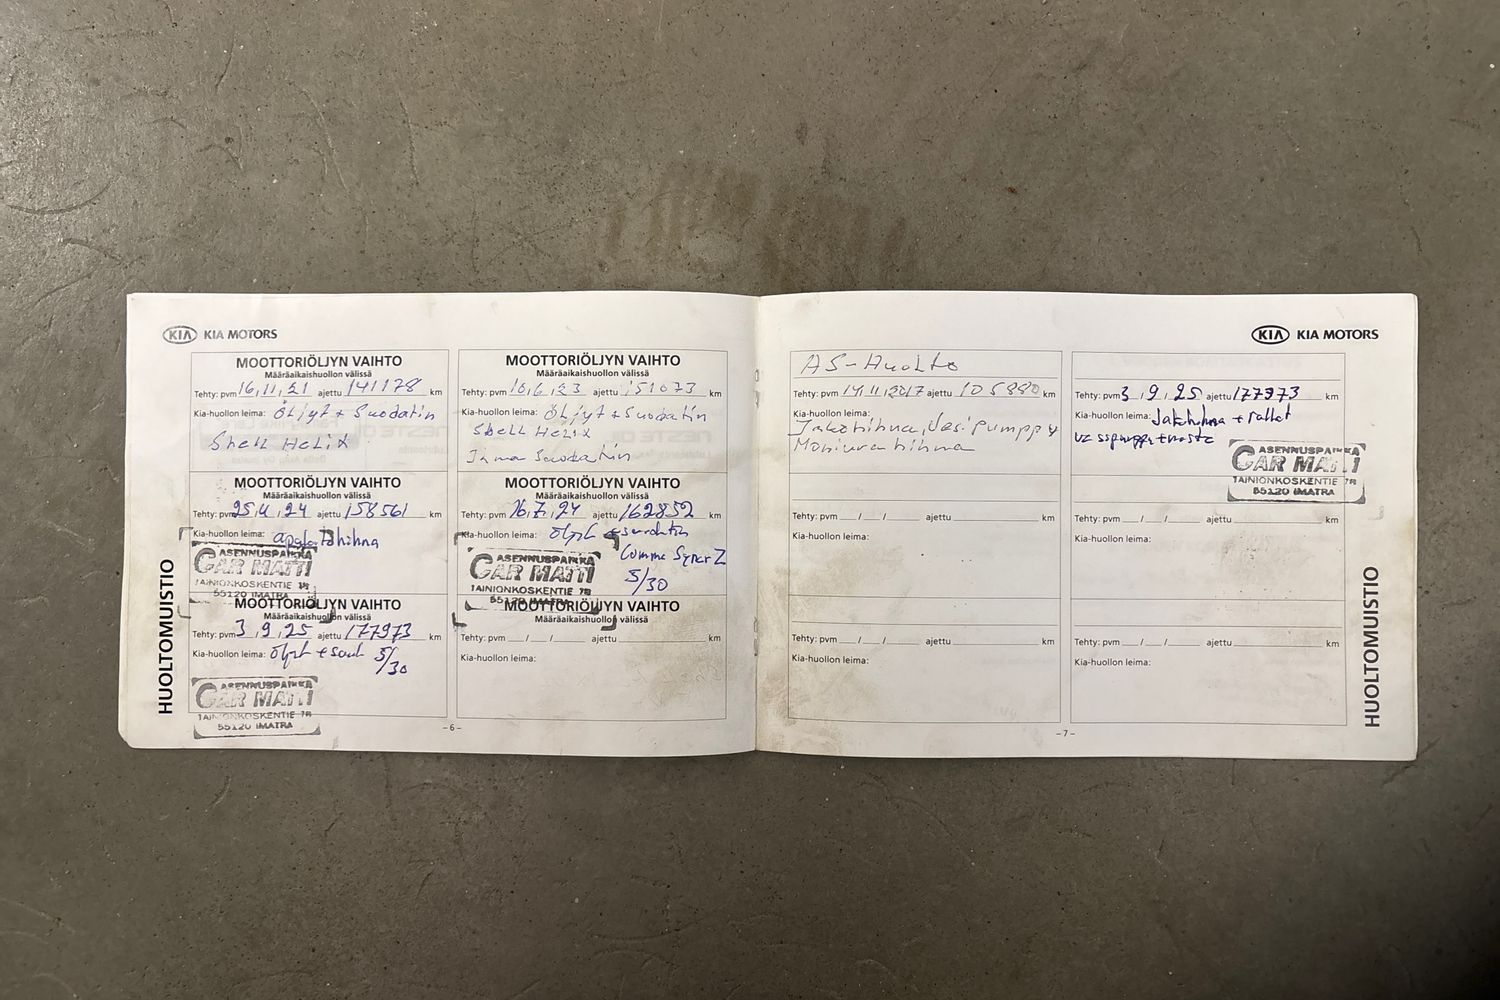 KIA KIA MOTORS
MOOTTORIÖLJYN VAIHTO
Määräaikaishuollon välissä
Tehty: pvm 16,11,21 ajettu 141178 km
Kia-huollon leima: Öljyt + Suodatin
Shell Helix
MOOTTORIÖLJYN VAIHTO
Määräaikaishuollon välissä
Tehty: pvm 16,6,23 ajettu 151073 km
Kia-huollon leima: Öljyt + Suodatin
Shell Helix
Ilma Suodatin
MOOTTORIÖLJYN VAIHTO
Määräaikaishuollon välissä
Tehty: pvm 25,4,24 ajettu 158561 km
Kia-huollon leima: apulaitehihna
ASENNUSPAIKKA
CAR MATTI
TAINIONKOSKENTIE 78
55120 IMATRA
MOOTTORIÖLJYN VAIHTO
Määräaikaishuollon välissä
Tehty: pvm 16,7,24 ajettu 162852 km
Kia-huollon leima: öljyt + suodatin
Comma Syner Z
5/30
ASENNUSPAIKKA
CAR MATTI
TAINIONKOSKENTIE 78
55120 IMATRA
MOOTTORIÖLJYN VAIHTO
Määräaikaishuollon välissä
Tehty: pvm 3,9,25 ajettu 177973 km
Kia-huollon leima: öljyt + suod 5/30
ASENNUSPAIKKA
CAR MATTI
TAINIONKOSKENTIE 78
55120 IMATRA
MOOTTORIÖLJYN VAIHTO
Määräaikaishuollon välissä
Tehty: pvm / / ajettu km
Kia-huollon leima:
HUOLTOMUISTIO
-6-
KIA KIA MOTORS
AS-Huolto
Tehty: pvm 14,11,2017 ajettu 105880 km
Kia-huollon leima:
Jakohihna, Vesipumppu
Moniurahihna
Tehty: pvm 3,9,25 ajettu 177973 km
Kia-huollon leima: Jakohihna + rullat
vesipumppu + neste
ASENNUSPAIKKA
CAR MATTI
TAINIONKOSKENTIE 78
55120 IMATRA
Tehty: pvm / / ajettu km
Kia-huollon leima:
Tehty: pvm / / ajettu km
Kia-huollon leima:
Tehty: pvm / / ajettu km
Kia-huollon leima:
Tehty: pvm / / ajettu km
Kia-huollon leima:
HUOLTOMUISTIO
-7-